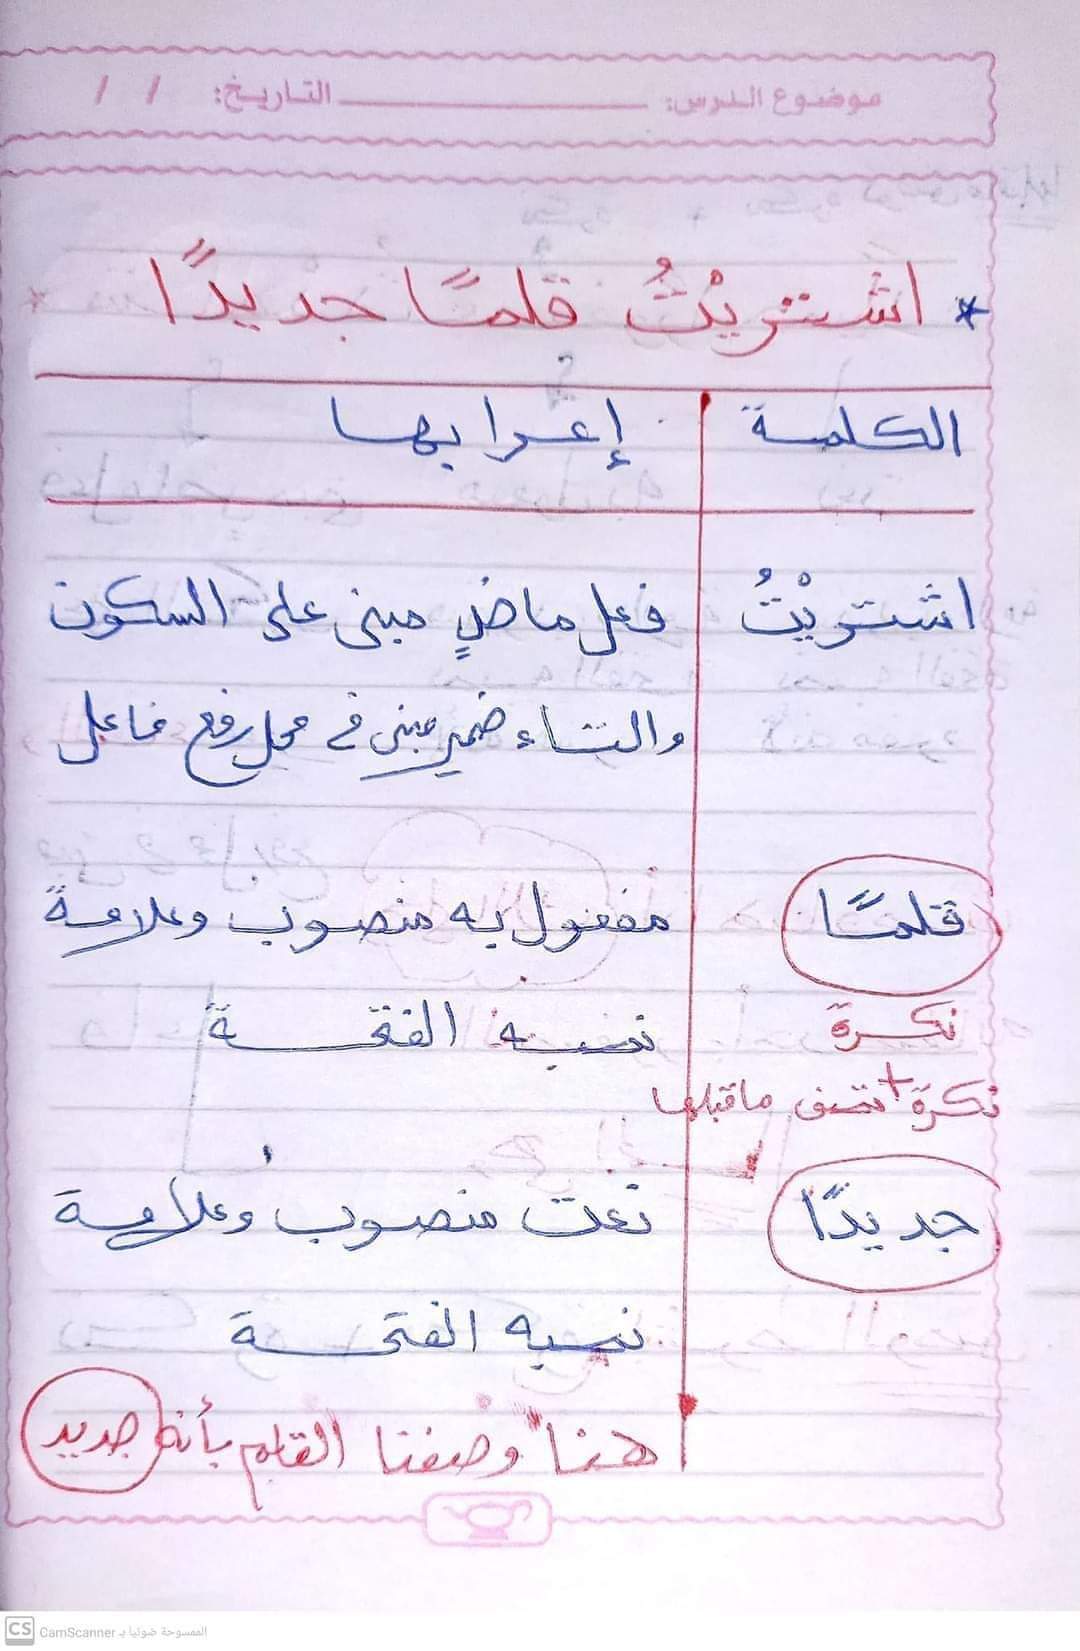 موضوع الدرس: ــــــــــــ التاريخ: / /
* اشتريْتُ قلمًا جديدًا
الكلمة إعرابها
اشتريْتُ فعل ماضٍ مبنى على السكون
والتاء ضمير مبنى في محل رفع فاعل
قلمًا مفعول به منصوب وعلامة
نصبه الفتحة
نكرة
نكرة + تصف ماقبلها
جديدًا نعت منصوب وعلامة
نصبه الفتحة
هنا وصفنا القلم بأنه جديد
CS CamScanner الممسوحة ضوئيا بـ